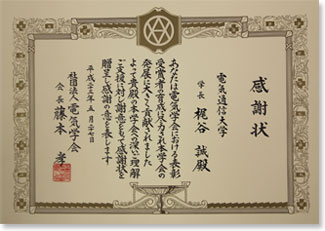 感謝状
電気通信大学
学長 梶谷 誠殿
あなたは電気学会における表彰
受賞者の育成に尽力され本学会の
発展に大きく貢献されました
よって貴殿の本学会への深い理解
ご支援に対し謝意をもって感謝状を
贈呈し感謝の意を表します
平成二十五年五月二十七日
社団法人 電気学会
会長 藤本 孝